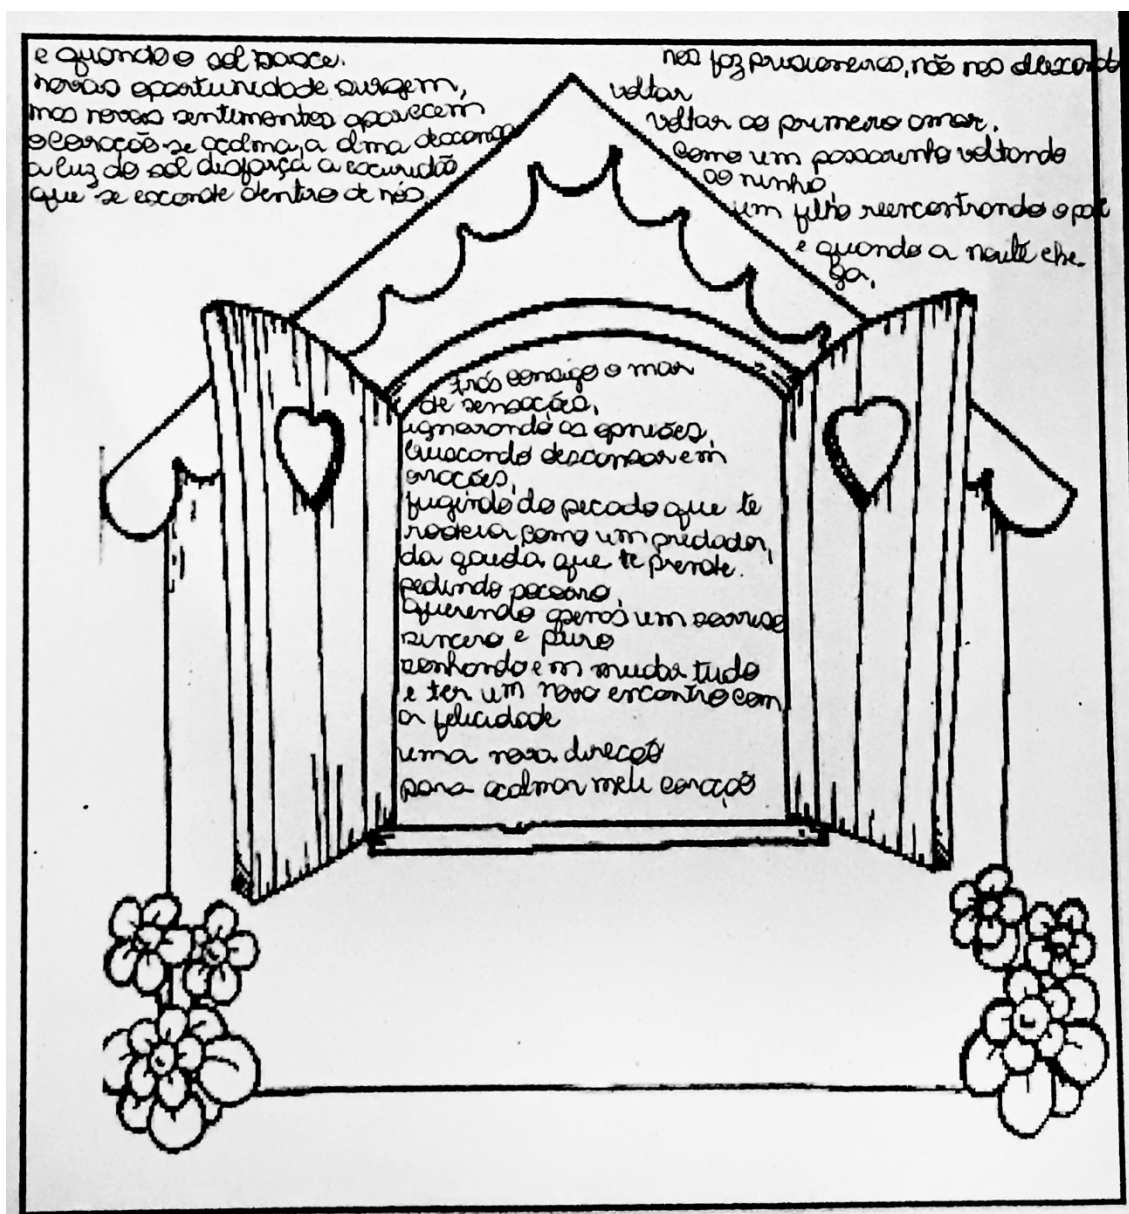 e quando o sol nasce.
novas oportunidade surgem,
mas novos sentimentos aparecem
o coração se acalma, a alma descansa
a luz do sol disfarça a escuridão
que se esconde dentro de nós
nos faz prisioneiros, não nos deixando
voltar
voltar ao primeiro amor.
como um passarinho voltando
ao ninho,
um filho reencontrando o pai
e quando a noite che-
ga,
trás consigo o mar
de sensações,
ignorando as opniões,
buscando descansar em
orações,
fugindo do pecado que te
rodeia como um predador,
da que te prende.
pedindo socorro,
querendo apenas um sorriso
sincero e puro
sonhando em mudar tudo
e ter um novo encontro com
a felicidade
uma nova direção
para acalmar meu coração